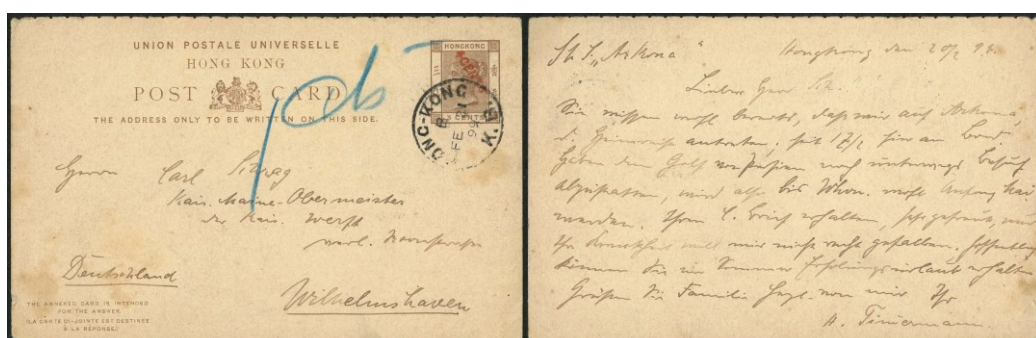 UNION POSTALE UNIVERSELLE
HONG KONG
POST CARD
THE ADDRESS ONLY TO BE WRITTEN ON THIS SIDE.
HONGKONG
CENTS
HONG-KONG
B
FE 21
99
K.B.
Herrn Carl
Kais. Marine-Obermeister
der Kais. Werft
Deutschland
Wilhelmshaven
THE ANNEXED CARD IS INTENDED
FOR THE ANSWER
(LA CARTE CI-JOINTE EST DESTINÉE
À LA RÉPONSE)
"Arkona" Hongkong den 20/2 99
Lieber Herr
Sie wissen wohl bereits, daß wir auf Arkona
d. Heimreise antreten; seit 17/2 hier an Bord.
Haben dem Golf von Persien noch unterwegs Besuch
abzustatten, wird also bis Whvn. wohl Anfang Mai
werden. Ihren l. Brief erhalten, sehr gefreut,
Ihr will mir nicht recht gefallen. hoffentlich
können Sie im Sommer Erholungsurlaub erhalten
Grüßen Sie Familie von mir Ihr